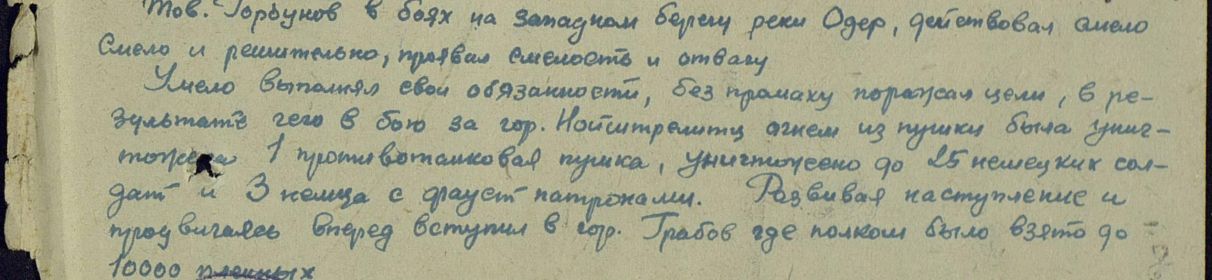 Тов. Горбунов в боях на западном берегу реки Одер, действовал смело
смело и решительно, проявил смелость и отвагу
Умело выполнял свои обязанности, без промаху поражал цели, в ре-
зультате чего в бою за гор. Нойштрелитц огнем из пушки была унич-
тожена 1 противотанковая пушка, уничтожено до 25 немецких сол-
дат и 3 немца с фауст патронами. Развивая наступление и
продвигаясь вперед вступил в гор. Грабов где полком было взято до
10000 пленных